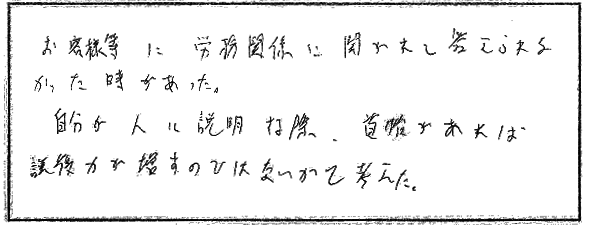 お客様等に労務関係に聞かれて答えられな
かった時があった。
自分が人に説明する際、資格があれば
説得力が増すのではないかと考えた。